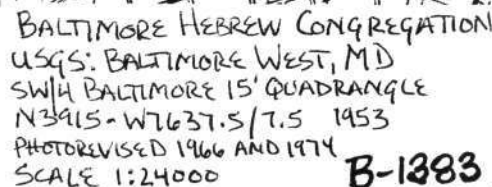 BALTIMORE HEBREW CONGREGATION
USGS: BALTIMORE WEST, MD
SW/4 BALTIMORE 15' QUADRANGLE
N3915-W7637.5/7.5 1953
PHOTOREVISED 1966 AND 1974
SCALE 1:24000 B-1383